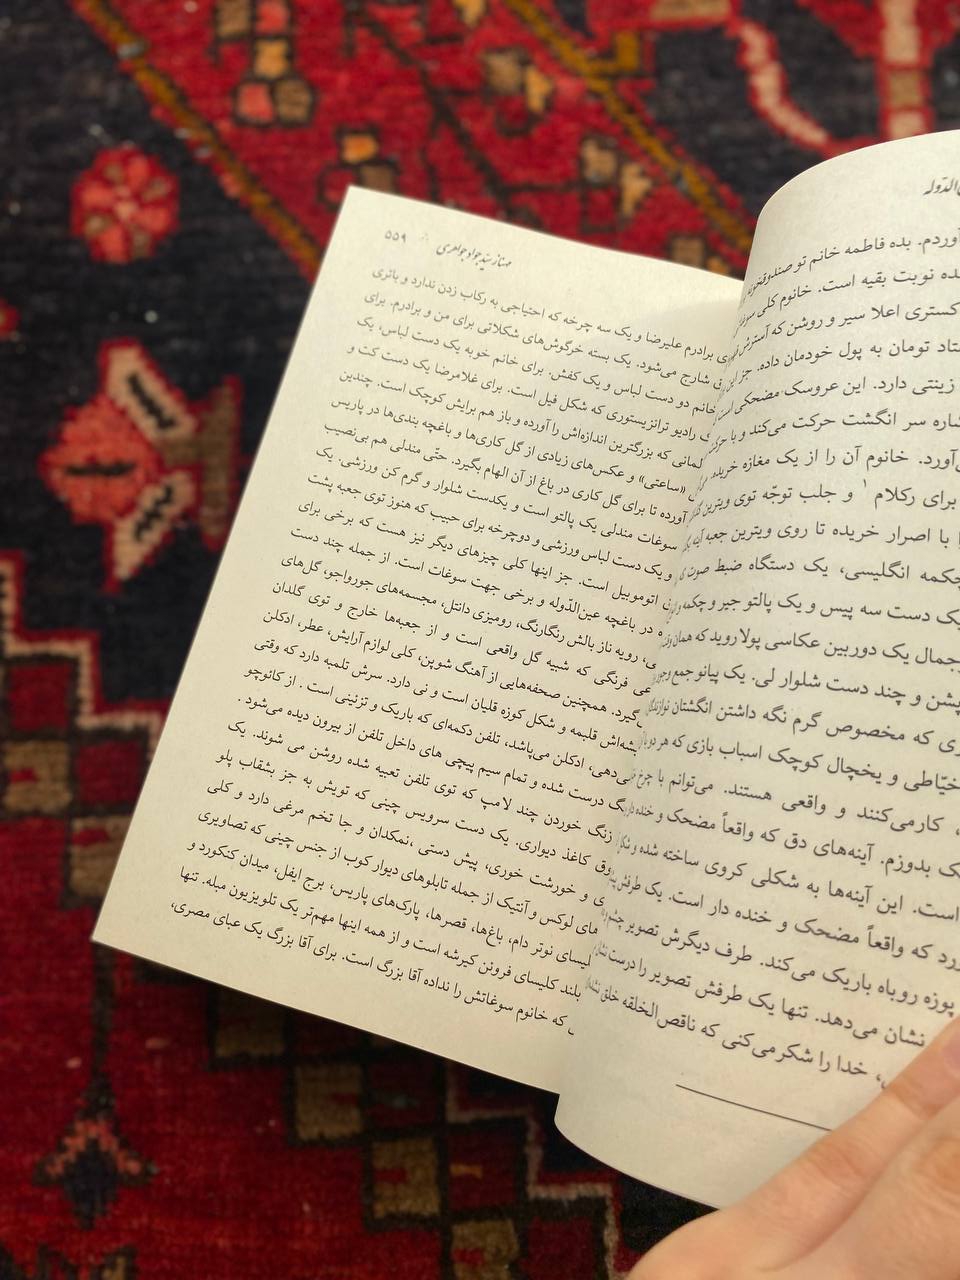 آوردم. بده فاطمه خانم تو صندوقخونه
ده نوبت بقیه است. خانوم کلی سوغات
کستری اعلا سیر و روشن که آسترش
تاد تومان به پول خودمان داده. جز این
زینتی دارد. این عروسک مضحکی است
شاره سر انگشت حرکت می‌کند و با حرکت
آورد. خانوم آن را از یک مغازه خریده
برای رکلام ۱ و جلب توجّه توی ویترین
با اصرار خریده تا روی ویترین جعبه آینه
چکمه انگلیسی، یک دستگاه ضبط صوت
یک دست سه پیس و یک پالتو جیر و چکمه
جمال یک دوربین عکاسی پولاروید که همان
پشن و چند دست شلوار لی. یک پیانو جمع و جور
ی که مخصوص گرم نگه داشتن انگشتان نوازندگان
خیّاطی و یخچال کوچک اسباب بازی که هر دو
، کار می‌کنند و واقعی هستند. می‌توانم با چرخ
ک بدوزم. آینه‌های دق که واقعاً مضحک و خنده
است. این آینه‌ها به شکلی کروی ساخته شده و
رد که واقعاً مضحک و خنده دار است. یک طرفش
پوزه روباه باریک می‌کند. طرف دیگرش تصویر
نشان می‌دهد. تنها یک طرفش تصویر را درست
، خدا را شکر می‌کنی که ناقص‌الخلقه خلق نشدی
مهناز سیّد جواد جواهری ۵۵۹
ی برادرم علیرضا و یک سه چرخه که احتیاجی به رکاب زدن ندارد و باتری
شارج می‌شود. یک بسته خرگوش‌های شکلاتی برای من و برادرم. برای
خانم دو دست لباس و یک کفش. برای خانم خوبه یک دست لباس، یک
رادیو ترانزیستوری که شکل فیل است. برای غلامرضا یک دست کت و
لمانی که بزرگترین اندازه‌اش را آورده و باز هم برایش کوچک است. چندین
«ساعتی» و عکس‌های زیادی از گل کاری‌ها و باغچه بندی‌ها در پاریس
آورده تا برای گل کاری در باغ از آن الهام بگیرد. حتّی مندلی هم بی‌نصیب
سوغات مندلی یک پالتو است و یکدست شلوار و گرم کن ورزشی. یک
و یک دست لباس ورزشی و دوچرخه برای حبیب که هنوز توی جعبه پشت
اتومبیل است. جز اینها کلی چیزهای دیگر نیز هست که برخی برای
در باغچه عین‌الدّوله و برخی جهت سوغات است. از جمله چند دست
ی، رویه ناز بالش رنگارنگ، رومیزی دانتل، مجسمه‌های جورواجور، گل‌های
عی فرنگی که شبیه گل واقعی است و از جعبه‌ها خارج و توی گلدان
گیرد. همچنین صحفه‌هایی از آهنگ شوپن، کلی لوازم آرایش، عطر، ادکلن
یشه‌اش قلبمه و شکل کوزه قلیان است و نی دارد. سرش تلمبه دارد که وقتی
ی‌دهی، ادکلن می‌پاشد، تلفن دکمه‌ای که باریک و تزئینی است . از کائوچو
گ درست شده و تمام سیم پیچی های داخل تلفن از بیرون دیده می‌شود .
زنگ خوردن چند لامپ که توی تلفن تعبیه شده روشن می شوند. یک
وق کاغذ دیواری. یک دست سرویس چینی که تویش به جز بشقاب پلو
ی و خورشت خوری، پیش دستی ،نمکدان و جا تخم مرغی دارد و کلی
مای لوکس و آنتیک از جمله تابلوهای دیوار کوب از جنس چینی که تصاویری
لیسای نوتر دام، باغ‌ها، قصرها، پارک‌های پاریس، برج ایفل، میدان کنکورد و
بلند کلیسای فروتن کیرشه است و از همه اینها مهم‌تر یک تلویزیون مبله. تنها
که خانوم سوغاتش را نداده آقا بزرگ است. برای آقا بزرگ یک عبای مصری،